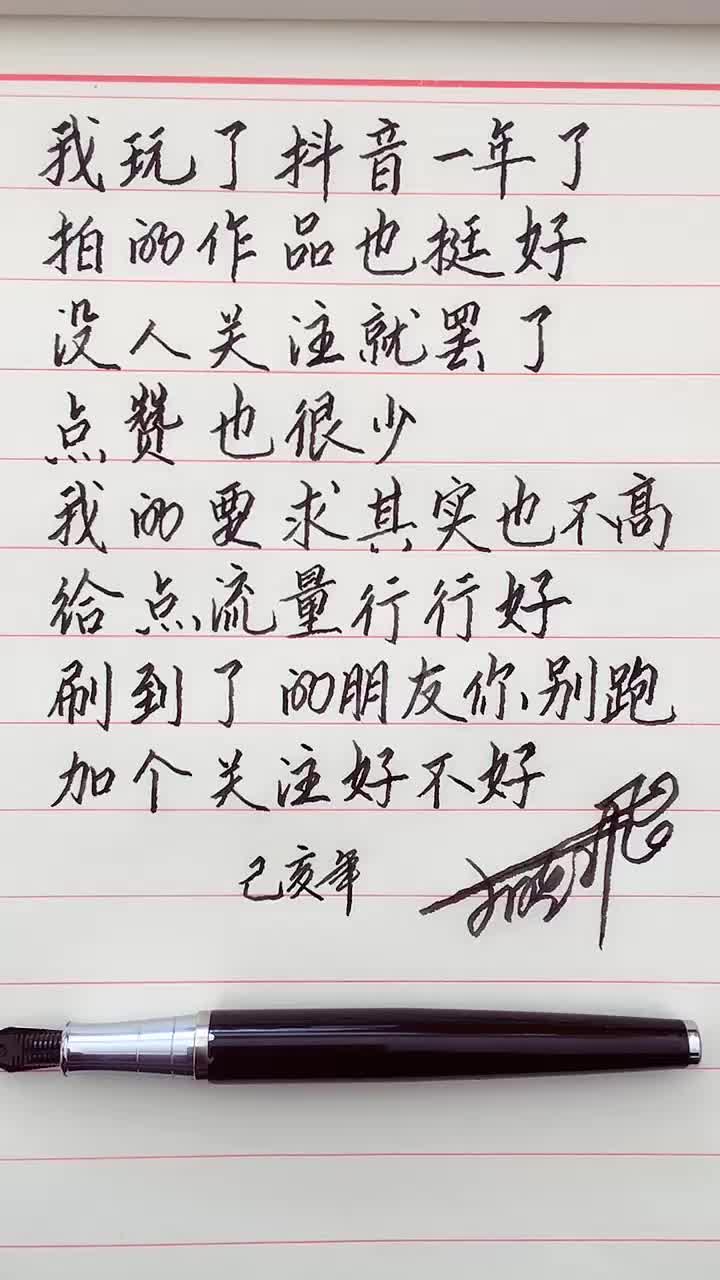 我玩了抖音一年了
拍的作品也挺好
没人关注就罢了
点赞也很少
我的要求其实也不高
给点流量行行好
刷到了的朋友你别跑
加个关注好不好
己亥年